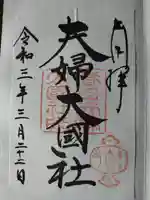 奉拝
夫婦大國社
令和三年三月二十二日